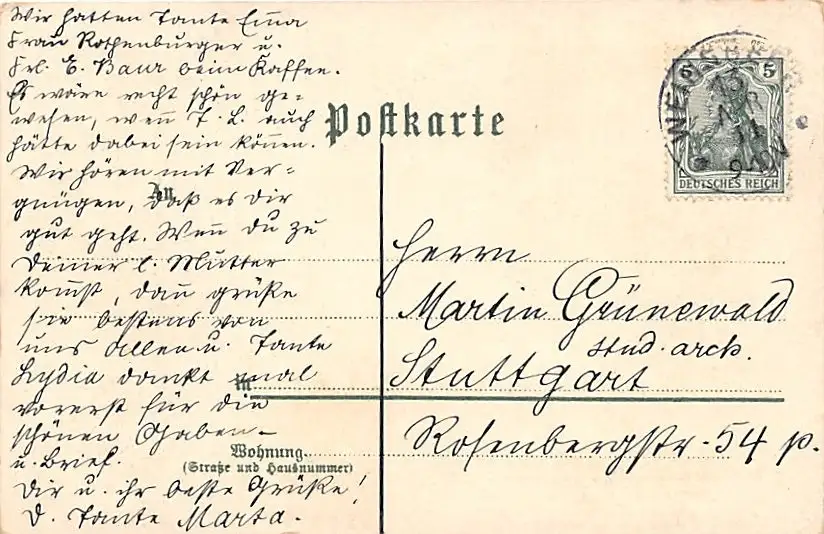 Wir hatten Tante Em̄a
Frau Rothenburger u.
Frl. E. Baur beim Kaffee.
Es wäre recht schön ge-
wesen, wen̄ T. L. auch
hätte dabei sein kön̄en.
Wir hören mit Ver-
gnügen, daß es dir
gut geht. Wen̄ du zu
Deiner l. Mutter
kom̄st, dan̄ grüße
sie bestens von
uns allen u. Tante
Lydia dankt mal
vorerst für die
schönen Gaben
u. Brief.
Dir u. ihr beste Grüße!
D. Tante Marta.
Postkarte
An
in
Wohnung
(Straße und Hausnummer)
5 5
DEUTSCHES REICH
13
11
9-10 V
Herrn
Martin Grünewald
stud. arch.
Stuttgart
Rosenbergstr. 54 p.